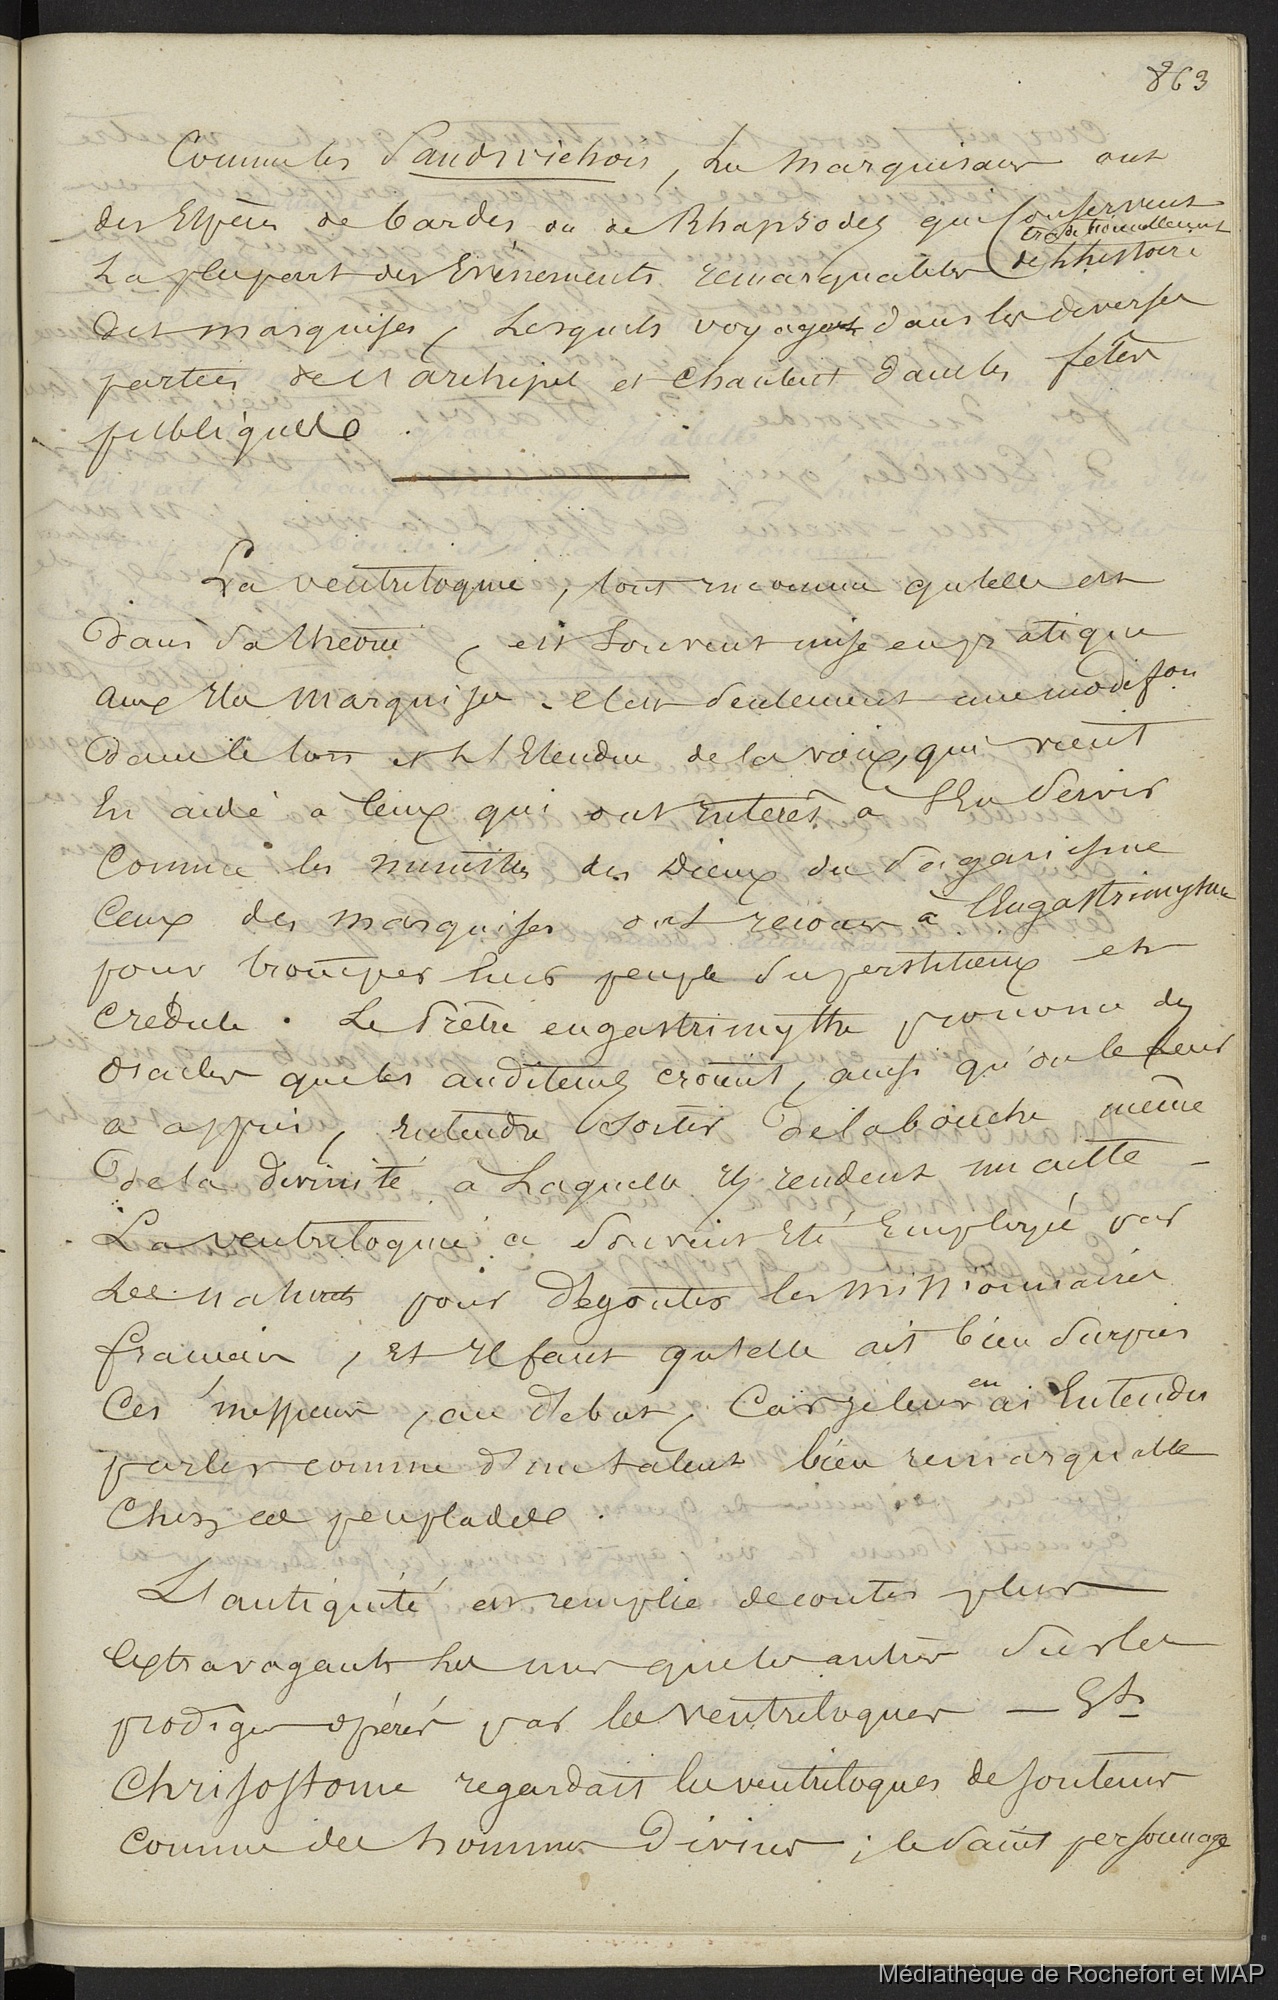 863
Comme les Sandwichois, les marquisans ont
des Espèces de bardes ou de Rhapsodes qui conservent
traditionnellement
la plupart des Evénements remarquables de l'histoire
des marquises, lesquels voyagent dans les diverses
parties de l'archipel et chantent dans les fêtes
publiques.
La ventriloquie, tout inconnue qu'elle est
dans sa théorie, est souvent mise en pratique
aux Iles Marquises. C'est seulement une modifon
dans le ton et l'Etendue de la voix, qui vient
En aide à ceux qui ont interêt à s'En servir
Comme les ministres des Dieux du Paganisme
Ceux des marquises ont recours à l'Engastrimysme
pour tromper leur peuple superstitieux et
crédule. Le Prêtre engastrimythe prononce des
oracles que les auditeurs croient, ainsi qu'on le leur
a appris, Entendre sortir de la bouche même
de la divinité à Laquelle Ils rendent un culte -
La ventriloquie a souvent Eté Employée par
Les naturels pour dégouter les missionnaires
français, Et Il faut qu'elle ait bien surpris
Ces messieurs, au début, Car je leur en ai Entendu
parler comme d'un talent bien remarquable
Chez ces peuplades.
L'antiquité est remplie de contes plus
Extravagants les uns que les autres sur les
prodiges opérés par les ventriloques — St
Chrisostome regardait les ventriloques de son tems
comme des hommes Divins ; le saint personnage
Médiathèque de Rochefort et MAP